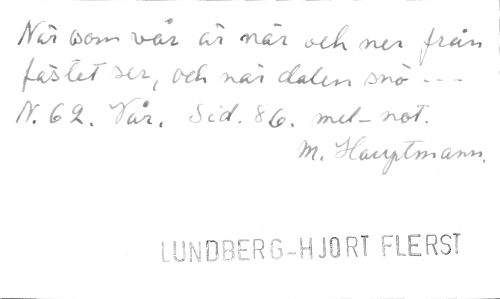 När som vår är när och ner från
fästet ser, och när dalen snö ---
N. 62. Vår. Sid. 86. mel-not.
M. Hauptmann.
LUNDBERG-HJORT FLERST